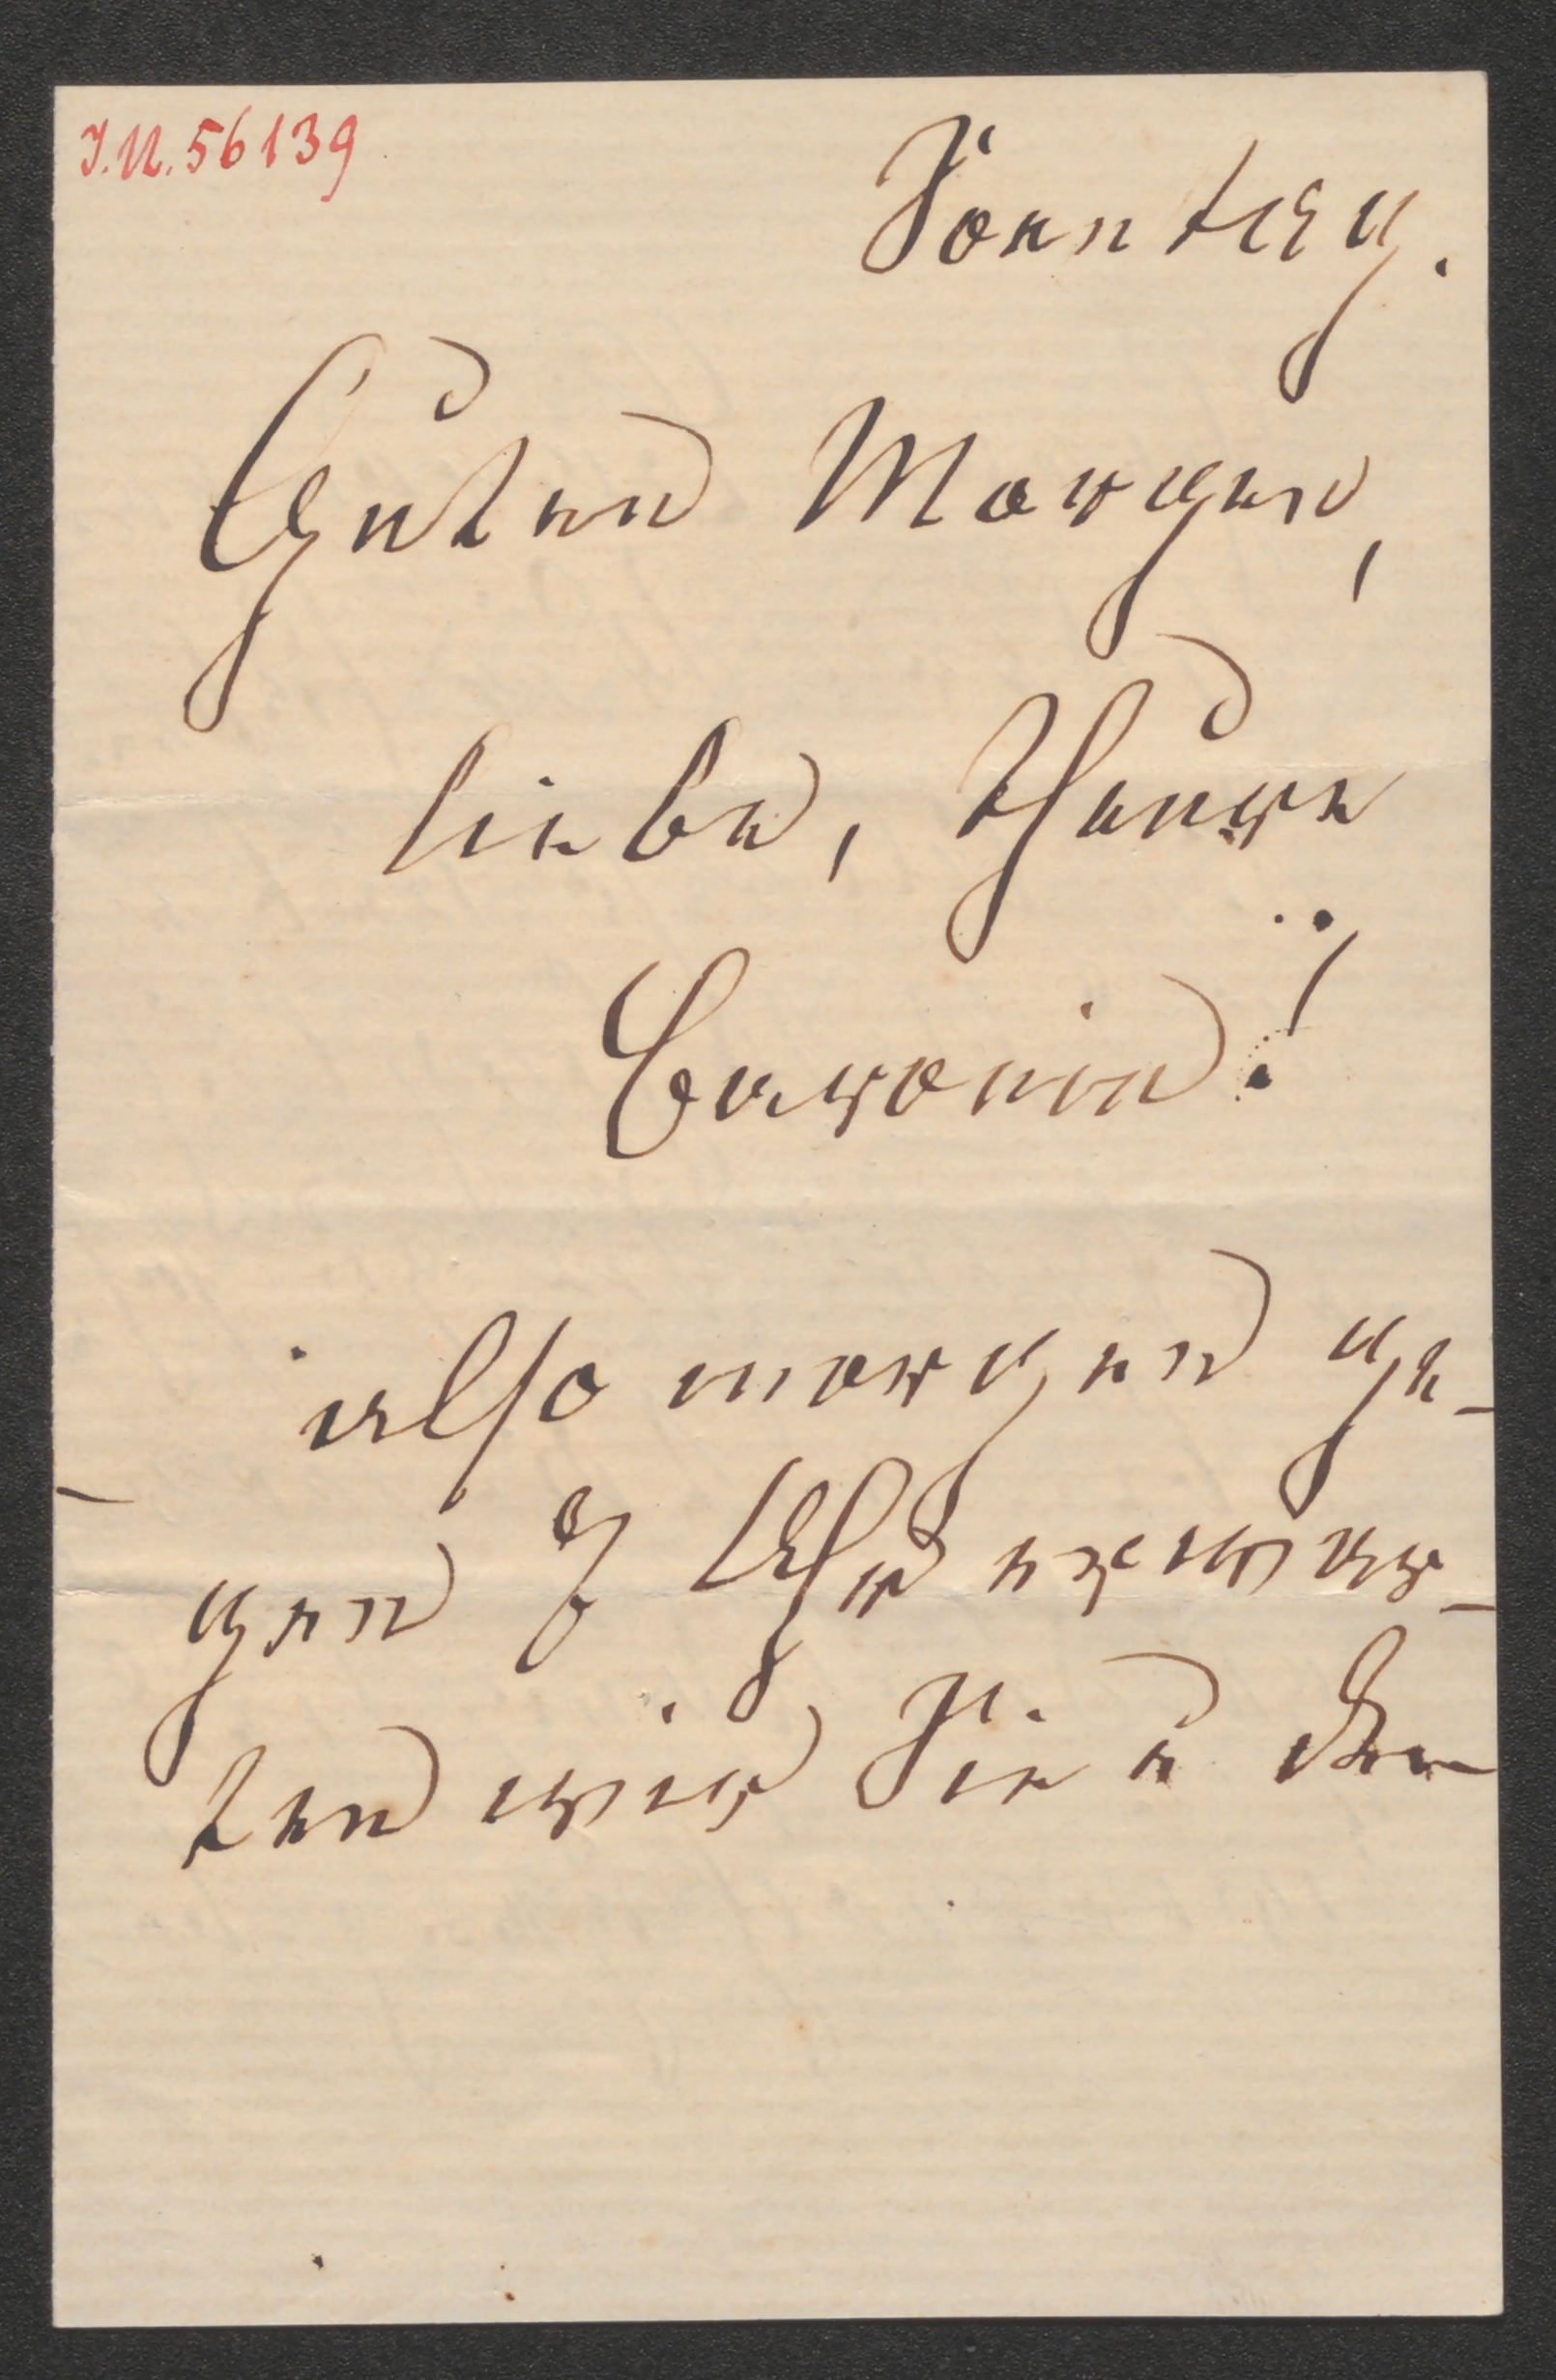 I.N. 56139
Sonntag.
Guten Morgen,
liebe, theure
Baronin!
also morgen ge-
-gen 8 Uhr erwar-
ten wir Sie u